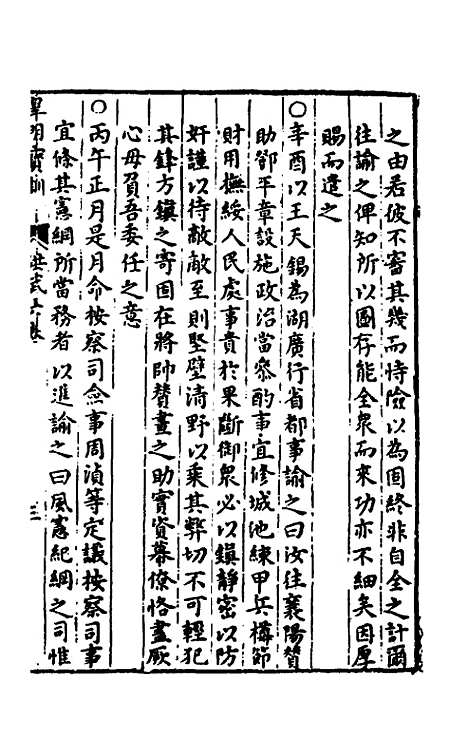 之由若彼不審其幾而恃險以為固終非自全之計爾
往諭之俾知所以圖存能全衆而來功亦不細矣因厚
賜而遣之
○辛酉以王天錫為湖廣行省都事諭之曰汝往襄陽贊
助鄧平章設施政治當叅酌事宜修城池練甲兵樽節
財用撫綏人民處事貴於果斷御衆必以鎮靜密以防
奸謹以待敵敵至則堅壁清野以乘其弊切不可輕犯
其鋒方鎮之寄固在將帥賛畫之助實資幕僚恪盡厥
心毋負吾委任之意
○丙午正月是月命按察司僉事周湞等定議按察司事
宜條其憲綱所當務者以進諭之曰風憲紀綱之司惟
皇明寶訓 三